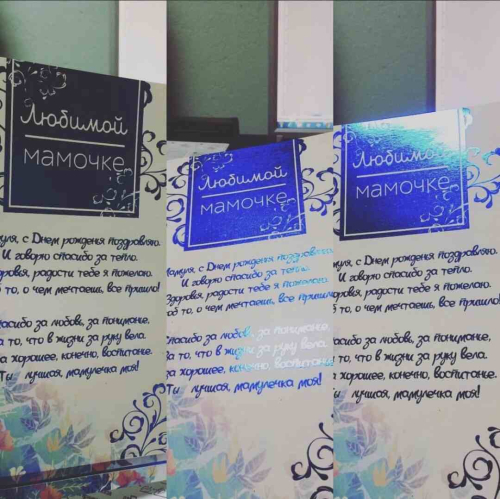 Любимой
мамочке
муля, с Днем рожденя поздравляю.
И говорю спасибо за тепло.
оровья, радости тебе я пожелаю.
об то, о чем мечтаешь, все пришло!
пасибо за любовь, за понимание.
а то, что в жизни за руку вела.
а хорошее, конечно, воспитание.
Ты лучшая, мамулечка моя!
Любимой
мамочке
Мамуля, с Днем рожденя поздравляю.
И говорю спасибо за тепло.
Здоровья, радости тебе я пожелаю.
об то, о чем мечтаешь, все пришло
Спасибо за любовь, за понимание.
За то, что в жизни за руку вела.
За хорошее, конечно, воспитание.
Ты лучшая, мамулечка моя!
Любимой
мамочке
уля, с Днем рожденя поздравляю.
И говорю спасибо за тепло.
ровья, радости тебе я пожелаю.
то, о чем мечтаешь, все пришло!
асибо за любовь, за понимание.
а то, что в жизни за руку вела.
а хорошее, конечно, воспитание.
Ты лучшая, мамулечка моя!